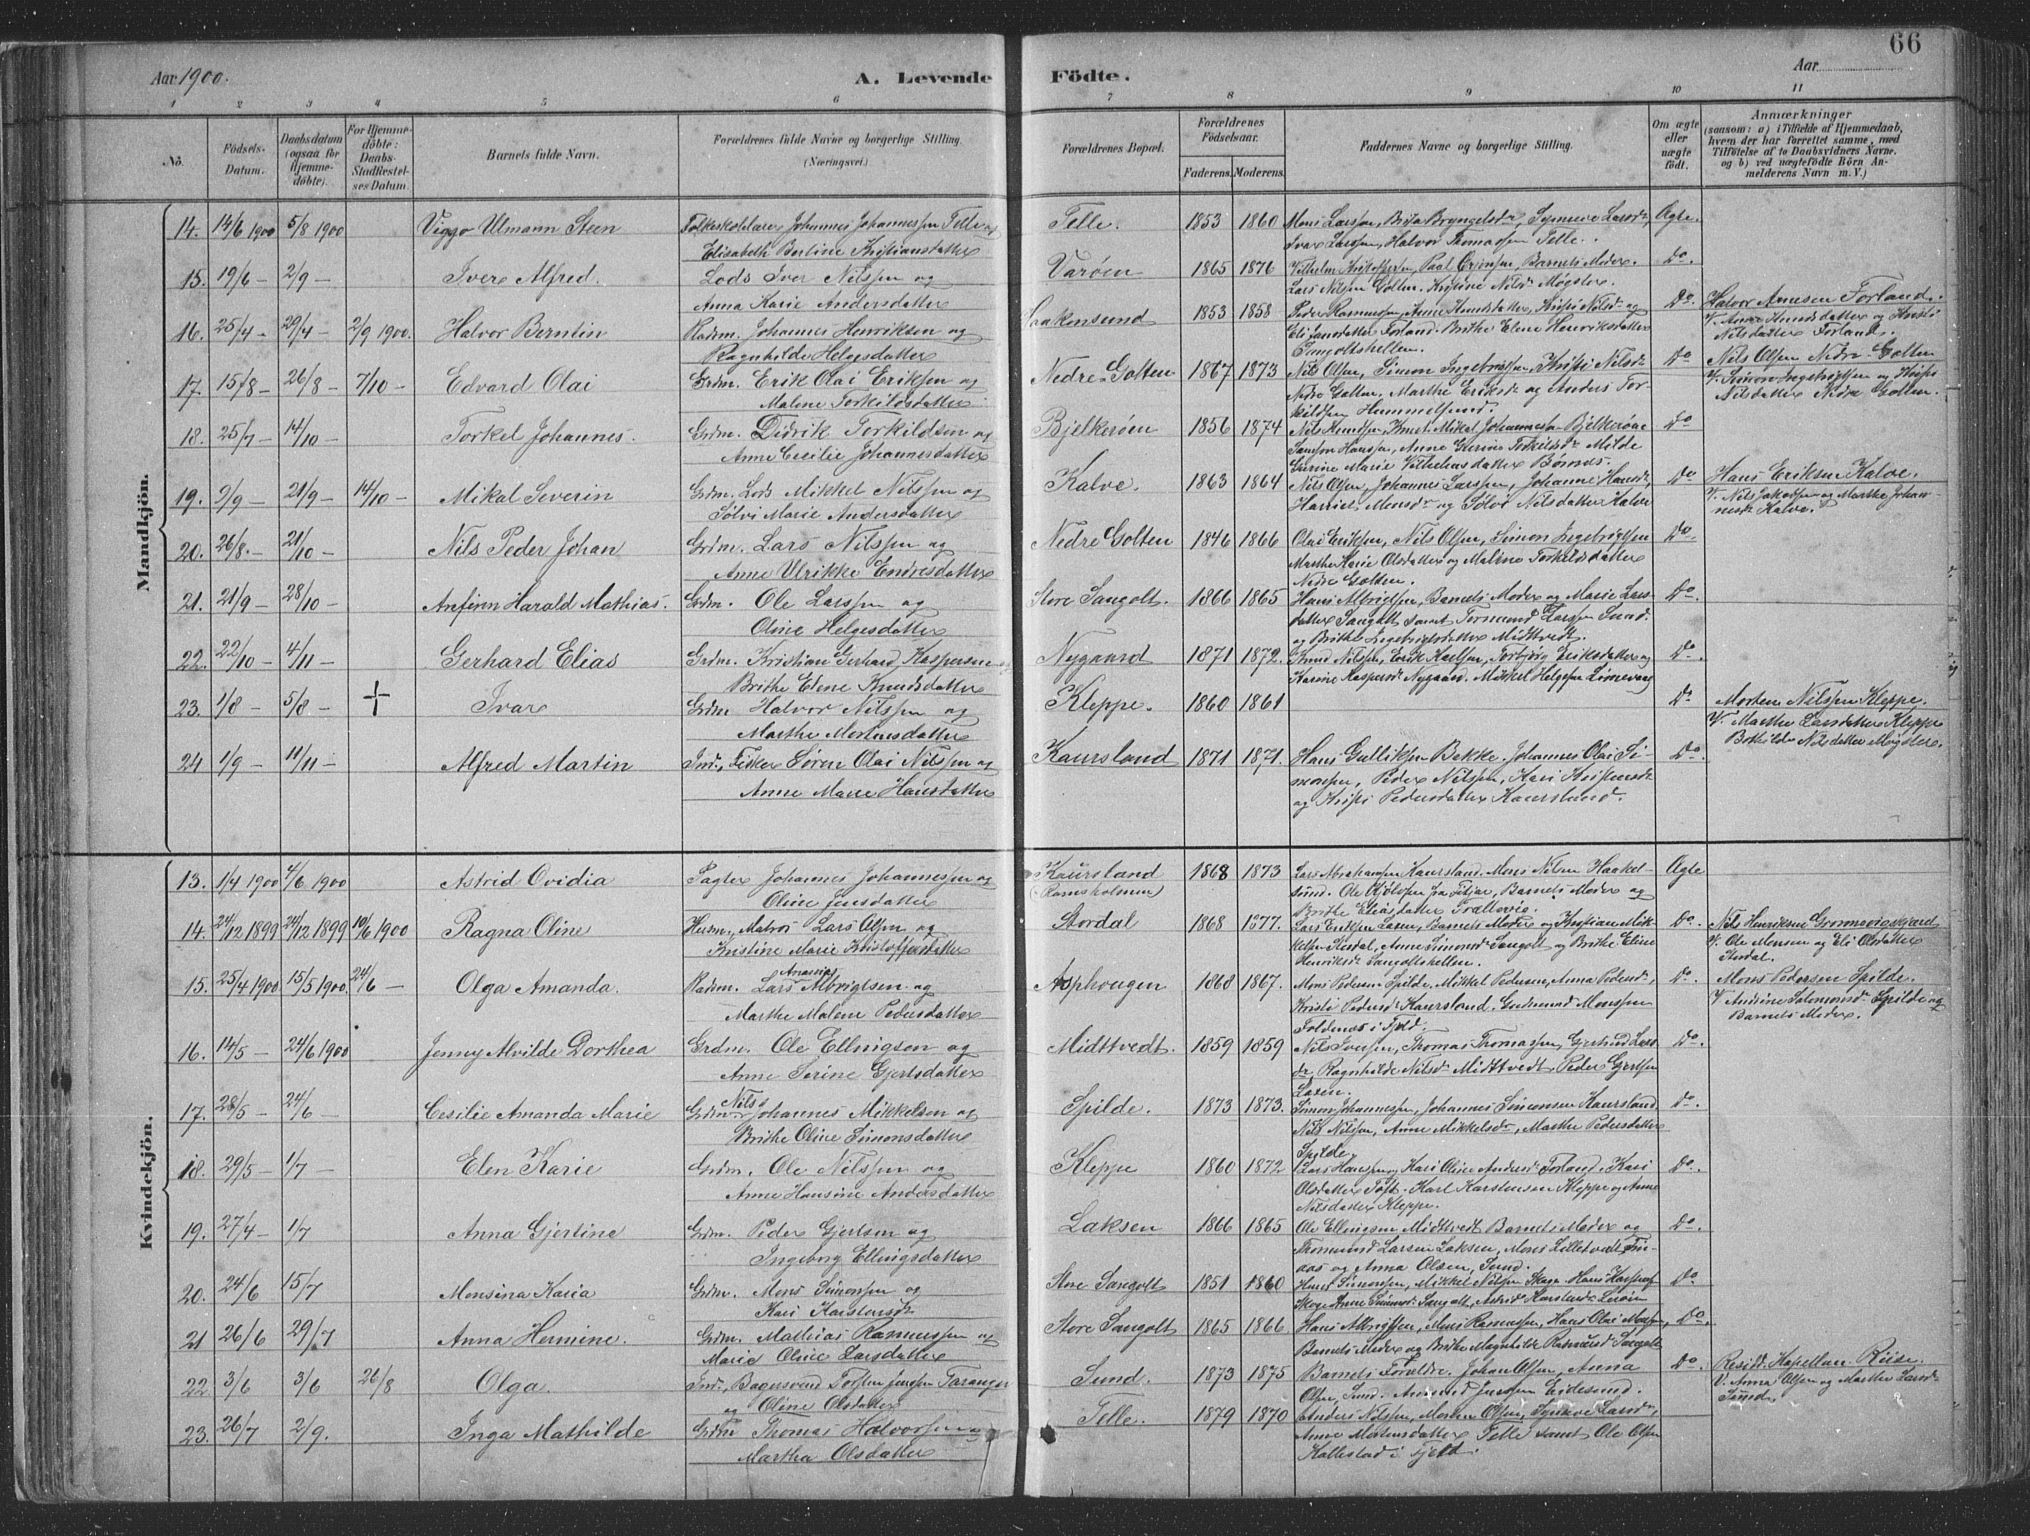 66
Aar 1900.
A. Levende Födte.
Aar
1 2 3 4 5 6 7 8 9 10 11
No.
Födsels-Datum.
Daabsdatum (ogsaa for Hjemmedöbte).
For Hjemmedöbte: Daabs-Stadfæstelses Datum.
Barnets fulde Navn.
Forældrenes fulde Navne og borgerlige Stilling. (Næringsvei.)
Forældrenes Bopæl.
Forældrenes Födselsaar.
Faderens. Moderens.
Faddernes Navne og borgerlige Stilling.
Om ægte eller uægte födt.
Anmærkninger
(saasom: a) i Tilfælde af Hjemmedaab, hvem der har forrettet samme, med Tilföielse af to Daabsvidners Navne. og b) ved uægtefödte Börn Anmelderens Navn m. V.)
Mandkjön.
14. 14/6 1900 5/8 1900 Viggo Ulmann Steen Folkeskolelærer Johannes Johannessen Telle og Telle. 1853 1860 Mons Larssen, Brita Bryngelsdr, Synneve Larsdr, Ægte
Elisabeth Bertine Kristiansdatter Ivar Larssen, Halvor Thomassen Telle.
15. 19/6 — 2/9 — Iver Alfred. Lods Iver Nilssen og Varöen 1865 1876 Vilhelm Kristoffersen, Paal Erviksen, Barnets Moder. Do.
Anna Karie Andersdatter Lars Nilsen Golten. Kristine Nilsdr Mögster.
16. 25/4 — 29/4 — 2/9 1900. Halvor Berntin Strdm. Johannes Henriksen og 1853 1858 Peder Rasmussen, Anne Knudsdatter, Kristi Nilsdr og Do. Halvor Arnesen Forland.
Ragnhilde Helgesdatter Eli Jansdatter Forland. Brithe Elene Henriksdatter Sangoltshellen. V. Anne Knudsdatter og Kristi Nilsdatter Forland.
17. 15/8 — 26/8 — 7/10 — Edvard Olai Grdm. Erik Olai Eriksen og Nedre Golten 1867 1873 Nils Olsen, Simon Ingebrigtsen, Kristi Nilsdr Do Nils Olsen Nedre Golten
Malene Torkildsdatter Nedre Golten, Marthe Eriksdr og Anders Torkildsen Hummelsund. V. Simon Ingebrigtsen og Kristi Nilsdatter Nedre Golten.
18. 25/7 — 14/10 — Torkel Johannes. Grdm. Didrik Torkildsen og Bjelkeröen 1856 1874 Nils Knudsen, Knut Mikal Johannessen Bjelkeröen Do
Anne Cecilie Johannesdatter Samson Hanssen, Anne Gurine Torkildsdr Milde Gurine Marie Vilhelmsdatter Börnes.
19. 2/9 — 21/9 — 14/10 — Mikal Severin Grdm. Lods Mikkel Nilssen og Kalve. 1863 1864 Nils Olsen, Johannes Larssen, Johanne Hansdr, Do Hans Eriksen Kalve.
Sölvi Marie Andersdatter Harriet Monsdr og Sölvi Nilsdatter Kalve V. Nils Jakobsen og Marthe Johannesdr Kalve.
20. 26/8. — 21/10 — Nils Peder Johan Grdm. Lars Nilssen og Nedre Golten 1846 1866 Olai Eriksen, Nils Olsen, Simon Ingebrigtsen Do.
Anne Ulrikke Endresdatter Marthe Karie Olsdatter og Malene Torkildsdatter Nedre Golten.
21. 21/9 — 28/10 — Anfinn Harald Mathias. Grdm. Ole Larssen og Store Sangolt. 1866 1865 Hans Albrigtsen, Barnets Moder og Marie Larsdatter Sangolt samt Tormund Larssen Sund. Do.
Oline Helgesdatter og Brithe Ingebrigtsdatter Midtvedt.
22. 22/10 — 4/11 — Gerhard Elias Grdm. Kristian Gerhard Kaspersen og Nygaard 1871 1872. Knud Nilssen, Erik Karlsen, Torbjörg Eriksdatter og Do.
Brithe Elene Knudsdatter Karine Kaspersdr Nygaard. Mikkel Helgesen Limevaag
23. 1/8 — 5/8 — + Ivar Grdm Halvor Nilssen og Kleppe. 1860 1861 Do Morten Nilssen Kleppe.
Marthe Mortensdatter V. Marthe Larsdatter Kleppe Bothilde Nilsdatter Mögster.
24 1/9 — 11/11 — Alfred Martin Ind., Fisker Sören Olai Nilssen og Kaursland 1871 1871. Hans Gulliksen Bakke. Johannes Olai Simonssen, Peder Nilsen, Do.
Anne Marie Hansdatter og Kristi Pedersdatter Kaursland.
Kvindekjön.
13. 1/4 1900 4/6 1900 Astrid Ovidia Pagter Johannes Johannessen og Kaursland (Ramsholmen) 1868 1873 Lars Abrahamsen Kaursland. Mons Nilsen Haakelsund. Ægte
Oline Jensdatter Barnets Moder og Brithe Eliasdatter Trællevig.
14. 24/12 1899 24/12 1899 10/6 1900 Ragna Oline Husm., Matros Lars Olsen og Stordal 1868 1877. Lars Eriksen Laxen, Barnets Moder og Kristiane Mikkelsen Stordal, Do. Nils Henriksen
Kristine Marie Kristoffersdatter Anne Simonsdr Sangolt og Brithe Eline Henriksdr Sangoltshellen. V. Ole Monsen og Eli Olsdatter Stordal.
15. 25/4 1900 15/5 1900. 24/6 — Olga Amanda. Strdm. Lars Ananias Albrigtsen og Asphougen 1868 1867. Mons Pedersen Spilde, Mikkel Pedersen, Anna Pedersdr, Do. Mons Pedersen Spilde.
Marthe Malene Pedersdatter Kristi Pedersdr Kaursland. Gudmund Monssen Foldenæs i Fjeld. V. Andrine Salomonsdr Spilde og Barnets Moder.
16. 14/5 — 24/6 1900 Jenny Alvilde Dorthea Grdm. Ole Ellingsen og Midttvedt. 1859 1859 Nils Iverssen, Thomas Thomassen, Gjertrud Larsdr, Do.
Anne Serine Gjertsdatter Ragnhilde Nilsdr Midtvedt. Peder Gjertsen Laxen.
17. 28/5 — 24/6 — Cecilie Amanda Marie Grdm. Nils Johannes Mikkelsen og Spilde. 1873 1873. Simon Johannessen, Johannes Simonsen Kaursland. Do.
Brithe Oline Simonsdatter Nils Nilssen, Anne Mikkelsdr, Marthe Pedersdatter Spilde.
18. 29/5 — 1/7 — Elen Karie Grdm. Ole Nilssen og Kleppe 1860 1872. Lars Hanssen og Kari Oline Andersdr Forland. Kari Do.
Anne Hansine Andersdatter Olsdatter Toft. Karl Karstensen Kleppe og Anne Nilsdatter Kleppe.
19. 27/4 — 1/7 Anna Gjertine Grdm. Peder Gjertsen og Laksen 1866 1865 Ole Ellingsen Midttvedt Barnets Moder og Do.
Ingeborg Ellingsdatter Thormund Larsen Laksen, Mons og Anna Olsen, Sund.
20. 24/6 15/7 Monsina Karia Grdm. Mons Simonssen og Store Sangolt 1851 1860 Knut Simonsen, Mikkel Nilsen Skoge Do
Kari Karstensdr Skoge Anne Simonsdr Sangolt, Astrid Karstensdr Leröen
21 26/6 29/7 Anna Hermine. Grdm. Mathias Rasmussen og Store Sangolt 1865 1866 Hans Albrigtsen, Mons Rasmussen, Hans Olai Monsen, Do.
Marie Oline Larsdatter Barnets Moder og Brithe Magnhilde Rasmusdr Sangolt
22. 3/6 3/6 26/8 Olga. Ind., Bagersvend Torsten Jenssen Taranger Sund 1873 1875 Barnets Forældre. Johan Olsen, Anna Do Resid. Kapellan Riise.
og Oline Olsdatter Olsen, Sund. Eidesund. V. Anna Olsen og Marthe Larsdr Sund.
23. 26/7 2/9. Inga Mathilde Grdm Thomas Halvorsen og Telle. 1879 1870 Anders Nilssen, Morten Olsen, Synneve Larsdr,
Martha Olsdatter Anne Mortensdatter Telle samt Ole Olsen Kallestad i Fjeld.